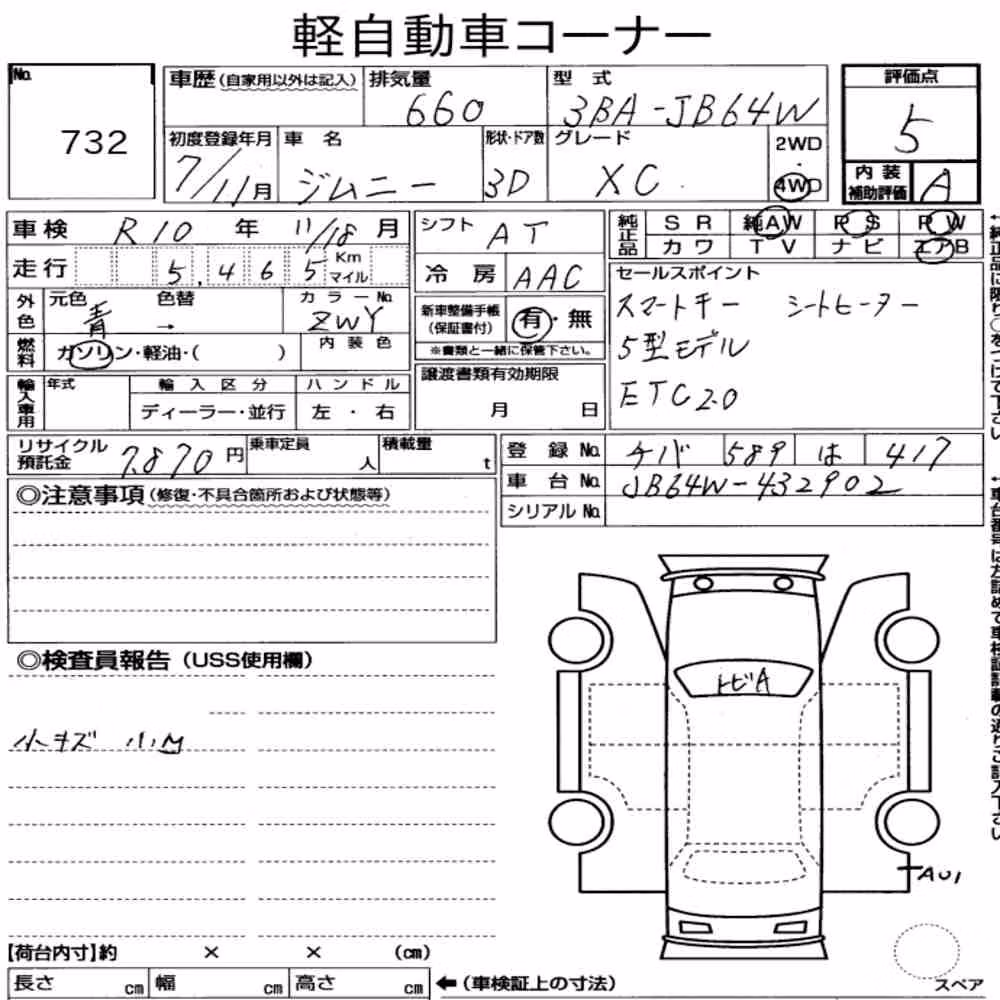 軽自動車コーナー
No. 732
車歴(自家用以外は記入) 排気量 660 型式 3BA-JB64W
初度登録年月 7/11月 車名 ジムニー 形状・ドア数 3D グレード XC 2WD・4WD
評価点 5
内装補助評価 A
車検 R10年 11/18月
走行 5,465 Km マイル
シフト AT
冷房 AAC
純正品 SR 純AW PS PW
カワ TV ナビ エアB
外色 元色 青 色替 → カラーNo. ZWY
燃料 ガソリン・軽油・( ) 内装色
新車整備手帳(保証書付) 有・無
※書類と一緒に保管下さい。
セールスポイント
スマートキー シートヒーター
5型モデル
ETC2.0
輸入車用 年式 輸入区分 ハンドル
ディーラー・並行 左・右
譲渡書類有効期限
月 日
リサイクル預託金 7,870円 乗車定員 人 積載量 t
登録No. チバ 589 は 417
車台No. JB64W-432902
シリアルNo.
◎注意事項(修復・不具合箇所および状態等)
◎検査員報告(USS使用欄)
小キズ 小凹
トビA
A01
【荷台内寸】約 × × (cm)
長さ cm 幅 cm 高さ cm ←(車検証上の寸法)
スペア
↑純正品に限り○をつけて下さい
↑車台番号は左詰めで車検証記載の通りご記入下さい